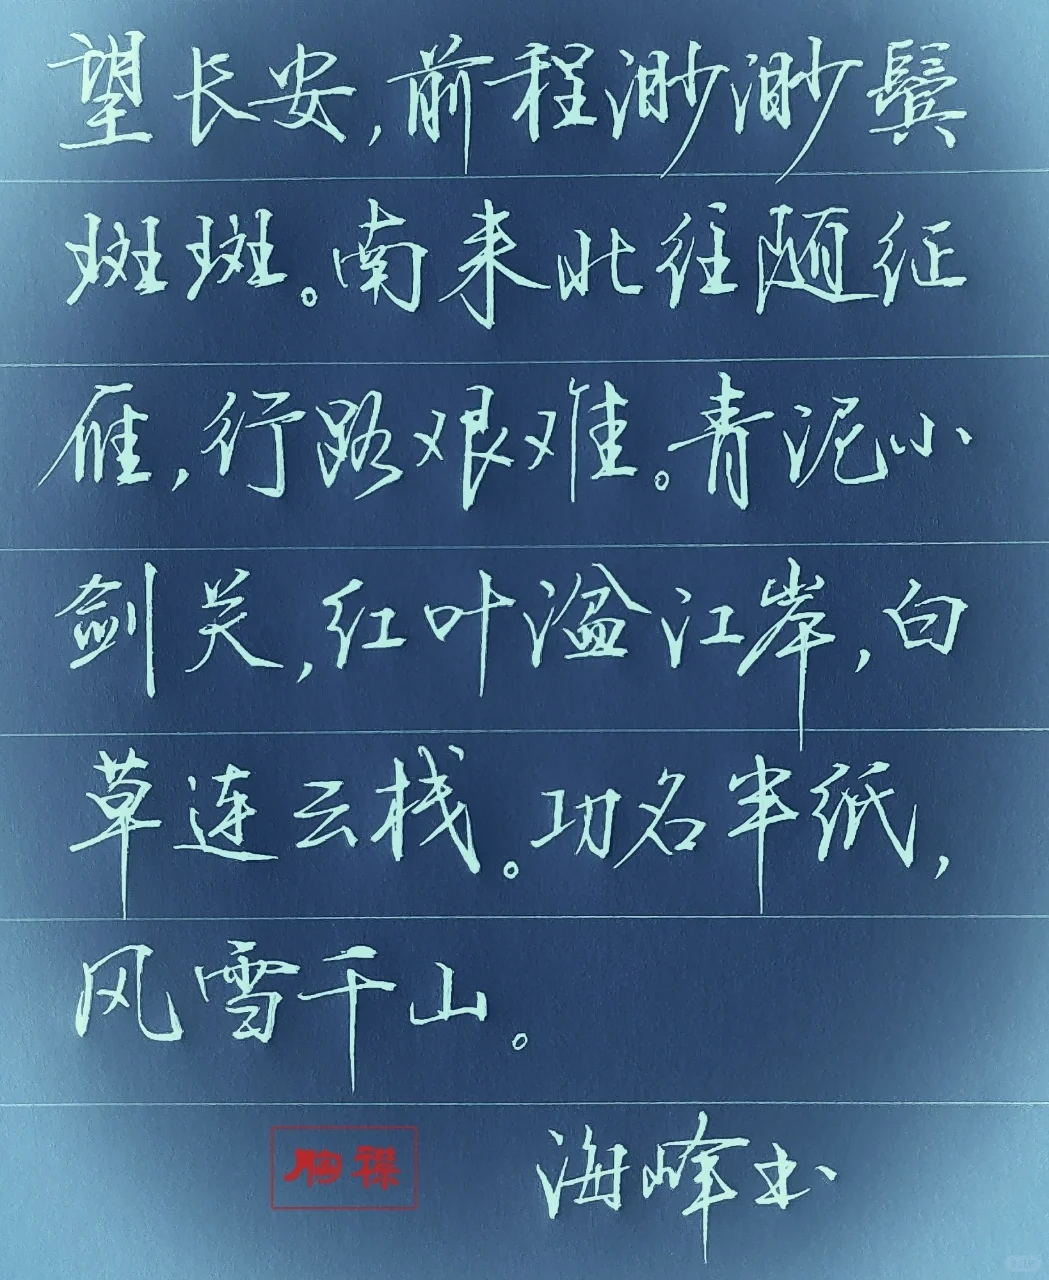 望长安,前程渺渺鬓
斑斑。南来北往随征
雁,行路艰难。青泥小
剑关,红叶湓江岸,白
草连云栈。功名半纸,
风雪千山。
海峰书